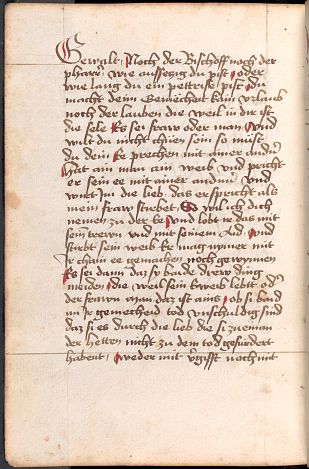 Gewalt / Noch der Bischoff noch der
pharrer wie aussetzig du pist / oder
wie lang du ein pettrise pist du
macht deinn Gemechet kain vrlaub
noch der lauben die weil in dir ist
die sele Es sei fraw oder man / vnd
wilt du nicht chüen sein so müst
du dein Ee prechen mit ainer ander
Hat ain man ain weib vnd pricht
er sein ee mit ainer andinn vnd
wirt im die lieb das er spricht als
mein fraw stirbet So wil ich dich
nemen zu der Ee vnd lobt ir das mit
sein trewn vnd mit seinem Aid vnd
stirbt sein weib Er mag ymer mit
Ir chain ee gemachen noch gewynnen
Es sei dann daz sy baide drew ding
meiden die weil sein Eweib lebtt oder
der frawn man daz ist ains / ob si baid
an Ir gemecheid tod vnschuldig sind
daz si es durch die lieb die si zueman
der hetten nicht zu dem tod gefurdert
habent / weder mit vergifft noch mit